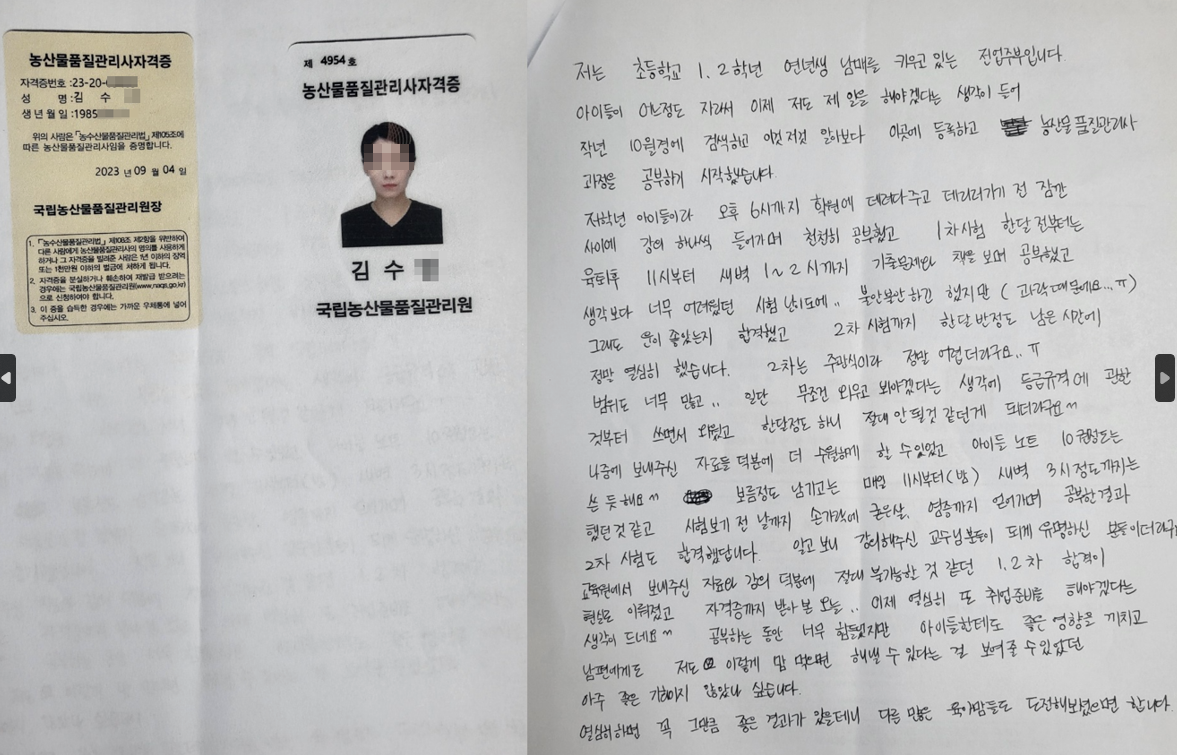 농산물품질관리사자격증
자격증번호 :23-20-
성 명:김 수
생년월일:1985
위의 사람은「농수산물품질관리법」제105조에
따른 농산물품질관리사임을 증명합니다.
2023 년 09 월 04 일
국립농산물품질관리원장
1. 「농수산물품질관리법」 제108조 제2항을 위반하여
다른 사람에게 농산물품질관리사의 명의를 사용하게
하거나 그 자격증을 빌려준 사람은 1년 이하의 징역
또는 1천만원 이하의 벌금에 처하게 됩니다.
2. 자격증을 분실하거나 훼손하여 재발급 받으려는
경우에는 국립농산물품질관리원(www.naqs.go.kr)
으로 신청하여야 합니다.
3. 이 증을 습득한 경우에는 가까운 우체통에 넣어
주십시오.
제 4954 호
농산물품질관리사자격증
김 수
국립농산물품질관리원
저는 초등학교 1, 2학년 연년생 남매를 키우고 있는 전업주부입니다.
아이들이 어느정도 자라써 이제 저도 제 일을 해야겠다는 생각이 들어
작년 10월경에 검색하고 이것저것 알아보다 이곳에 등록하고 농산물품질관리사
과정을 공부하게 시작했습니다.
저학년 아이들이라 오후 6시까지 학원에 데려다주고 데리러가기 전 잠깐
사이에 강의 하나씩 들어가며 천천히 공부했고 1차시험 한달 전부터는
육퇴후 11시부터 새벽 1~2시까지 기출문제와 책을 보며 공부했고
생각보다 너무 어려웠던 시험 난이도에.. 불안불안하긴 했지만 (과락때문에요...ㅠ)
그래도 운이 좋았는지 합격했고 2차 시험까지 한달 반정도 남은 시간에
정말 열심히 했습니다. 2차는 주관식이라 정말 어렵더라구요..ㅠ
범위도 너무 많고.. 일단 무조건 외우고 봐야겠다는 생각에 등급규격에 관한
것부터 쓰면서 외웠고 한달정도 하니 절대 안될것 같던게 되더라구요~
나중에 보내주신 자료들 덕분에 더 수월하게 할 수 있었고 아이들 노트 10권정도는
쓴 듯해요^^ 보름정도 남기고는 매일 11시부터(밤) 새벽 3시정도까지는
했던 것 같고 시험보기 전 날까지 손가락에 굳은살, 염증까지 얻어가며 공부한결과
2차 시험도 합격했답니다. 알고 보니 강의해주신 교수님분들이 되게 유명하신 분들이더라구
교육원에서 보내주신 자료와 강의 덕분에 절대 불가능한 것 같던 1, 2차 합격이
현실로 이뤄졌고 자격증까지 받아 본 오늘.. 이제 열심히 또 취업준비를 해야겠다는
생각이 드네요^^ 공부하는 동안 너무 힘들었지만 아이들한테도 좋은 영향을 끼치고
남편에게도 저도 이렇게 맘 먹으면 해낼 수 있다는 걸 보여줄 수 있었던
아주 좋은 기회이지 않았나 싶습니다.
열심히하면 꼭 그만큼 좋은 결과가 있을테니 다른 많은 육아맘들도 도전해보셨으면 합니다.